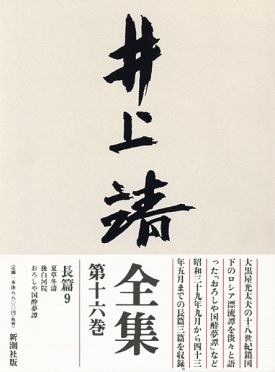 井上靖
全集
第十六巻
大黒屋光太夫の十八世紀鎖国
下のロシア漂流譚を淡々と語
った「おろしや国酔夢譚」など
昭和三十九年九月から四十三
年五月までの長篇三篇を収録。
長篇9
夏草冬濤
後白河院
おろしや国酔夢譚
新潮社版